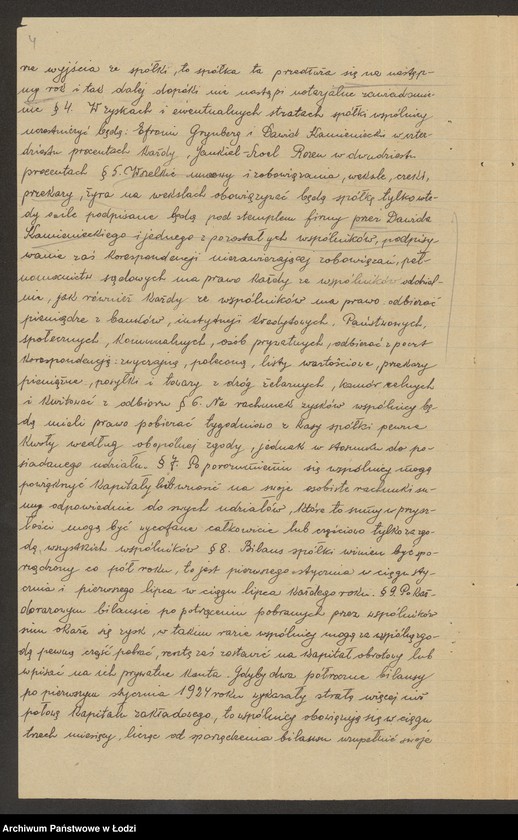 4
nie wyjścia ze spółki, to spółka ta przedłuża się na następ-
ny rok i tak dalej dopóki nie nastąpi notarjalne zawiadomie-
nie § 4. W zyskach i ewentualnych stratach spółki wspólnicy
uczestniczyć będą: Efroim Grynberg i Dawid Kamieniecki w czter-
dziestu procentach każdy Jankiel-Icek Rozen w dwudziestu
procentach § 5. Wszelkie umowy i zobowiązania, weksle, czeki,
przekazy, żyra na wekslach obowiązywać będą spółkę tylko wte-
dy o ile podpisane będą pod stemplem firmy przez Dawida
Kamienieckiego i jednego z pozostałych wspólników, podpisy-
wanie zaś korespondencji niezawierającej zobowiązań, peł-
nomocnictw sądowych ma prawo każdy ze wspólników oddziel-
nie, jak również każdy ze wspólników ma prawo odbierać
pieniądze z banków, instytucji kredytowych, Państwowych,
społecznych, komunalnych, osób prywatnych, odbierać z poczt
korespondencję zwyczajną, poleconą, listy wartościowe, przekazy
pieniężne, posyłki i towary z dróg żelaznych, komór celnych
i kwitować z odbioru § 6. Na rachunek zysków wspólnicy bę-
dą mieli prawo pobierać tygodniowo z kasy spółki pewne
kwoty według obopólnej zgody, jednak w stosunku do po-
siadanego udziału. § 7. Po porozumieniu się wspólnicy mogą
powiększyć kapitały lub wnosić na swoje osobiste rachunki su-
my odpowiednie do swych udziałów, które to sumy w przysz-
łości mogą być wycofane całkowicie lub częściowo tylko za zgo-
dą wszystkich wspólników § 8. Bilans spółki winien być spo-
rządzony co pół roku, to jest pierwszego stycznia w ciągu sty-
cznia i pierwszego lipca w ciągu lipca każdego roku. § 9. Po każ-
dorazowym bilansie po potrąceniu pobranych przez wspólników
sum okaże się zysk, w takim razie wspólnicy mogą za wspólną zgo-
dą pewną część pobrać, resztę zaś zostawić na kapitał obrotowy lub
wpisać na ich prywatne konta. Gdyby dwa półroczne bilansy
po pierwszym stycznia 1924 roku wykazały stratę więcej niż
połowę kapitału zakładowego, to wspólnicy obowiązują się w ciągu
trzech miesięcy, licząc od sporządzenia bilansu uzupełnić swoje
Archiwum Państwowe w Łodzi